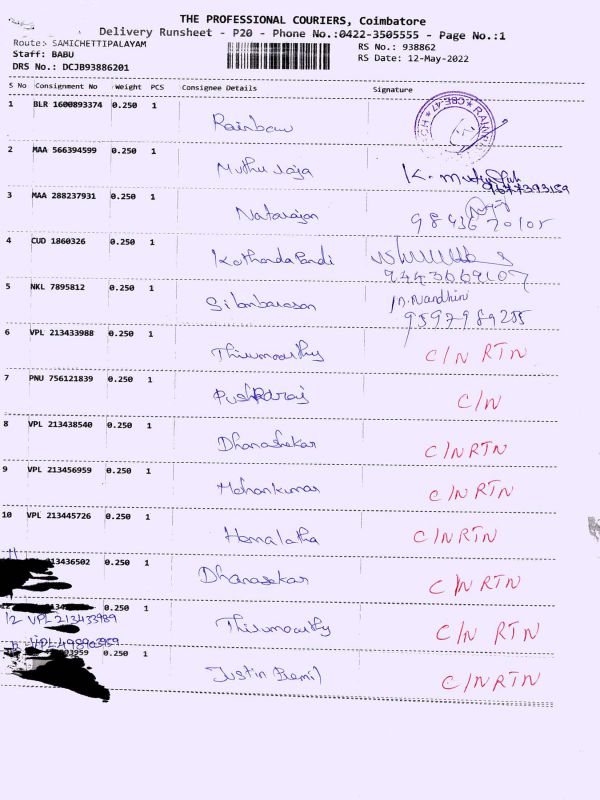 THE PROFESSIONAL COURIERS, Coimbatore
Delivery Runsheet - P20 - Phone No.:0422-3505555 - Page No.:1
Route: SAMICHETTIPALAYAM
RS No.: 938862
Staff: BABU
RS Date: 12-May-2022
DRS No.: DCJB93886201
S No Consignment No Weight PCS Consignee Details Signature
1 BLR 1600893374 0.250 1 Rainbow
2 MAA 566394599 0.250 1 Muthu raja K. 
9677393189
3 MAA 288237931 0.250 1 Natarajan
98436 70105
4 CUD 1860326 0.250 1 Kothanda Pandi
9443669107
5 NKL 7895812 0.250 1 Silambarasan M. Nandhini
9597989255
6 VPL 213433988 0.250 1 Thirumoorthy C/N RTN
7 PNU 756121839 0.250 1 Pushparaj C/N
8 VPL 213438540 0.250 1 Dhanashekar C/N RTN
9 VPL 213456959 0.250 1 Mohankumar C/N RTN
10 VPL 213445726 0.250 1 Hemalatha C/N RTN
11 213436502 0.250 1 Dhanasekar C/N RTN
12 VPL 213433989 0.250 1 Thirumoorthy C/N RTN
VPL 498903959
03959 0.250 1 Justin Bemil C/N RTN